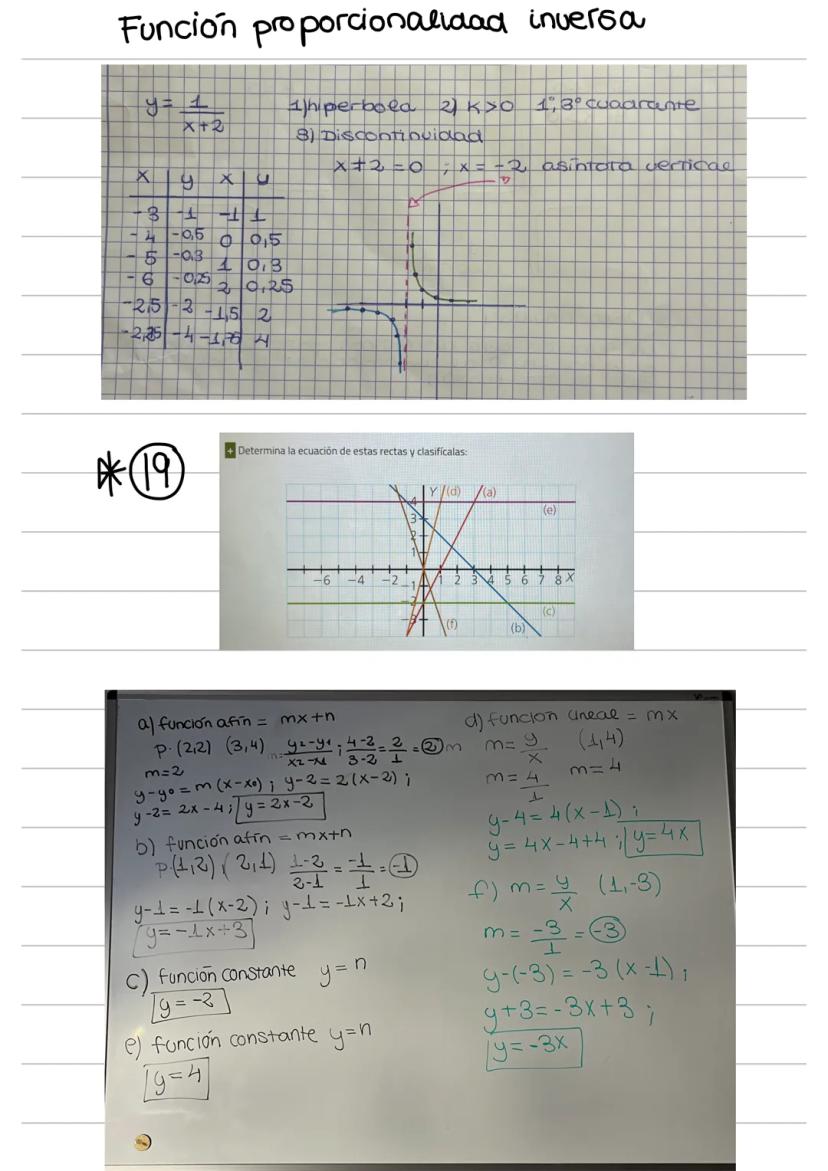 Función proporcionalidad inversa
y = 1/(x+2) 1) hiperbola 2) K>0 1º, 3º cuadrante
3) Discontinuidad
x+2=0 ; x=-2 asíntota vertical
x | y x | y
-3 | -1 -1 | 1
-4 | -0,5 0 | 0,5
-5 | -0,3 1 | 0,3
-6 | -0,25 2 | 0,25
-2,5 | -2 -1,5 | 2
-2,25 | -4 -1,75 | 4
* 19
+ Determina la ecuación de estas rectas y clasifícalas:
Y (d) (a)
4
(e)
3
2
1
-6 -4 -2 1 2 3 4 5 6 7 8 X
-1
-2
(c)
-3 (f) (b)
a) función afín = mx+n
P. (2,2) (3,4) m= y2-y1/x2-x1 ; 4-2/3-2 = 2/1 = 2 m
m=2
y-y0 = m (x-x0) ; y-2 = 2(x-2) ;
y-2 = 2x-4 ; y=2x-2
b) función afín = mx+n
P.(1,2) (2,1) 1-2/2-1 = -1/1 = -1
y-1=-1(x-2) ; y-1=-1x+2 ;
y=-1x+3
c) función constante y=n
y=-2
e) función constante y=n
y=4
d) función lineal = mx
m= y/x (1,4)
m= 4/1 m=4
y-4=4(x-1) ;
y=4x-4+4 ; y=4x
f) m= y/x (1,-3)
m= -3/1 = -3
y-(-3) = -3(x-1) ;
y+3=-3x+3 ;
y=-3x